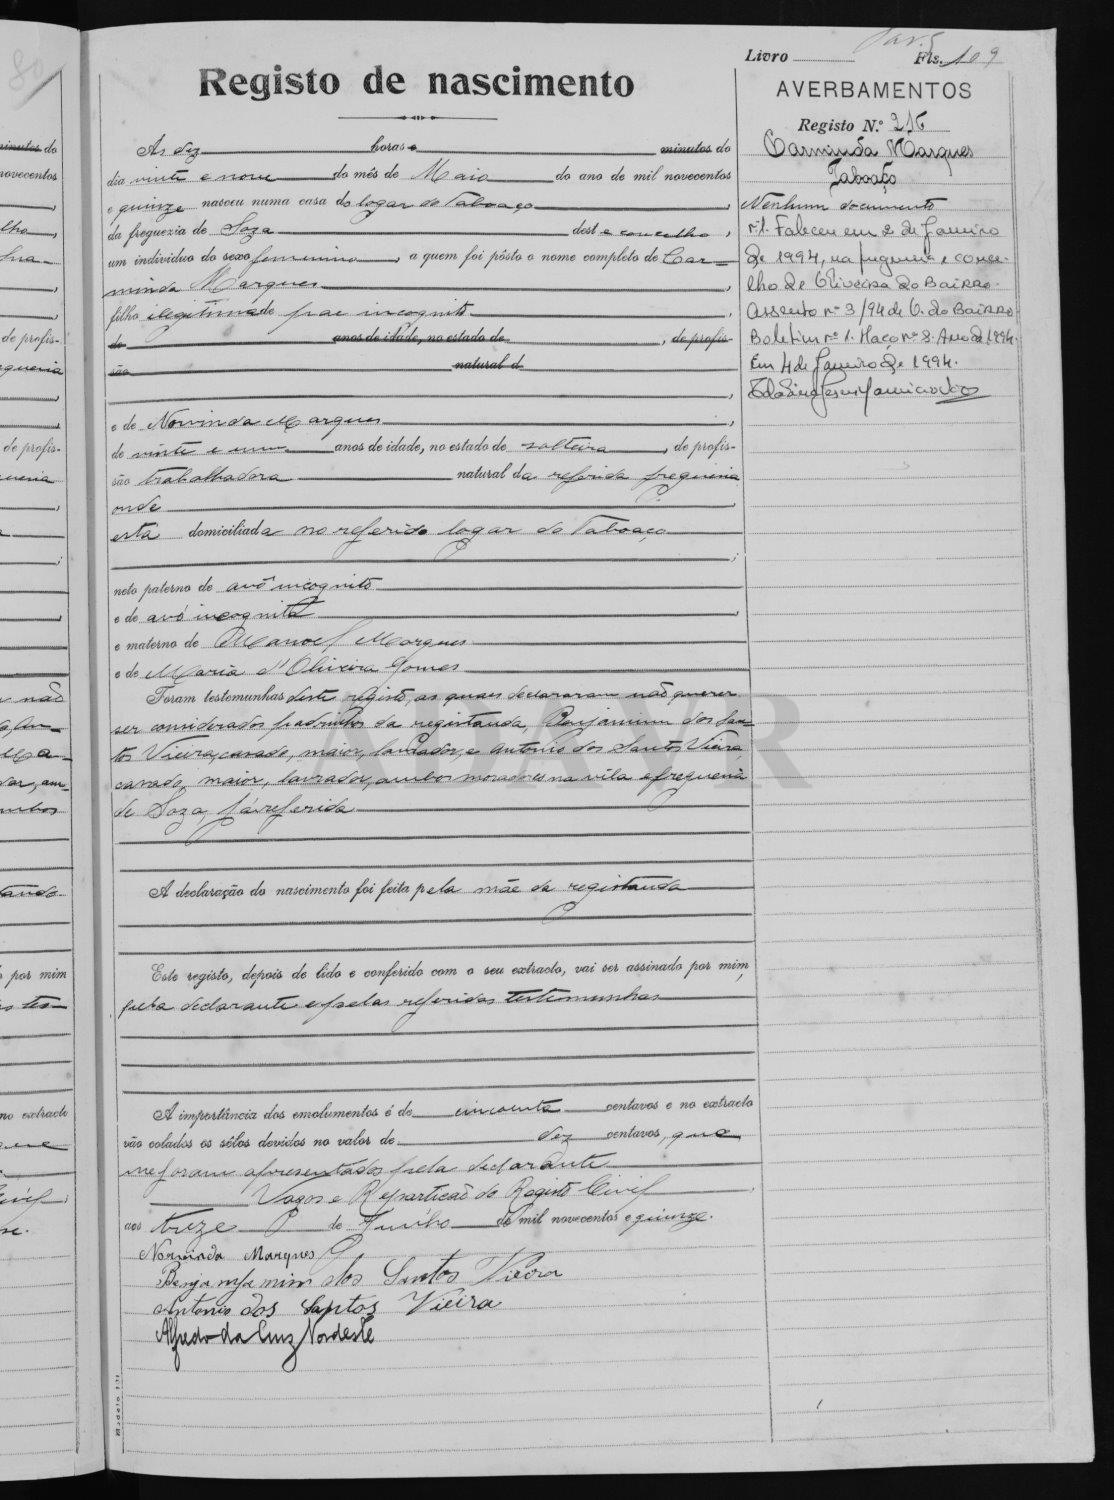 Livro Fls. 109
Registo de nascimento
AVERBAMENTOS
Registo N.º 216
Carminda Marques
Taboaço
Nenhum documento
nº1. Faleceu em 2 de Janeiro
de 1994, na freguesia e conce-
lho de Oliveira do Bairro.
Assento nº 3/94 de O. do Bairro
Boletim nº 1. Maço nº 3. Ano de 1994.
Em 4 de Janeiro de 1994.
Ás dez horas e minutos do
dia vinte e nove do mês de Maio do ano de mil novecentos
e quinze nasceu numa casa do logar do Taboaço
da freguezia de Soza deste concelho,
um individuo do sexo feminino, a quem foi pôsto o nome completo de Car-
minda Marques,
filho ilegitima de pae incognito,
de anos de idade, no estado de, de profis-
são natural d
e de Norvinda Marques,
de vinte e um anos de idade, no estado de solteira, de profis-
são trabalhadora natural da referida freguezia
onde
está domiciliada no referido logar do Taboaço
neto paterno de avô incognito
e de avó incognita,
e materno de Manoel Marques
e de Maria d'Oliveira Gomes
Foram testemunhas deste registo, as quaes declararam não querer
ser considerados padrinhos da registanda, Benjamim dos San-
tos Vieira, casado, maior, lavrador, e Antonio dos Santos Vieira,
casado, maior, lavrador, ambos moradores na vila e freguezia
de Soza, já referida
A declaração do nascimento foi feita pela mãe da registanda
Este registo, depois de lido e conferido com o seu extracto, vai ser assinado por mim,
pela declarante e pelas referidas testemunhas
A importância dos emolumentos é de cincoenta centavos e no extracto
vão colados os sêlos devidos no valor de dez centavos, que
me foram apresentados pela declarante
Vagos e Repartição do Registo Civil,
aos treze de Junho de mil novecentos e quinze.
Norvinda Marques
Benjamim dos Santos Vieira
Antonio dos Santos Vieira
Alfredo da Cruz Nordeste
ADAVR